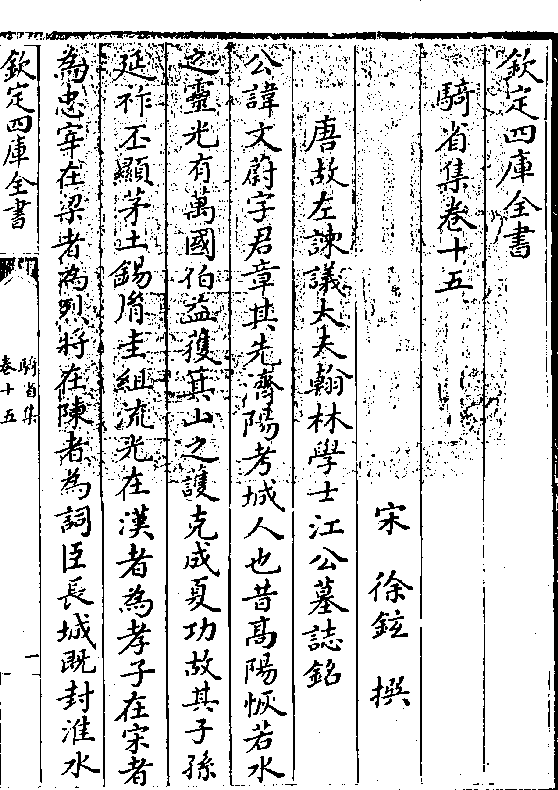 欽定四庫全書
騎省集卷十五
宋 徐鉉 撰
唐故左諫議大夫翰林學士江公墓誌銘
公諱文蔚字君章其先濟陽考城人也昔髙陽恢若水
之靈光有萬國伯益獲箕山之䕶克成夏功故其子孫
延祚丕顯茅土錫𦙍圭組流光在漢者為孝子在宋者
為忠宰在梁者為烈將在陳者為詞臣長城既封淮水
欽定四庫全書
騎省集
卷十五
一